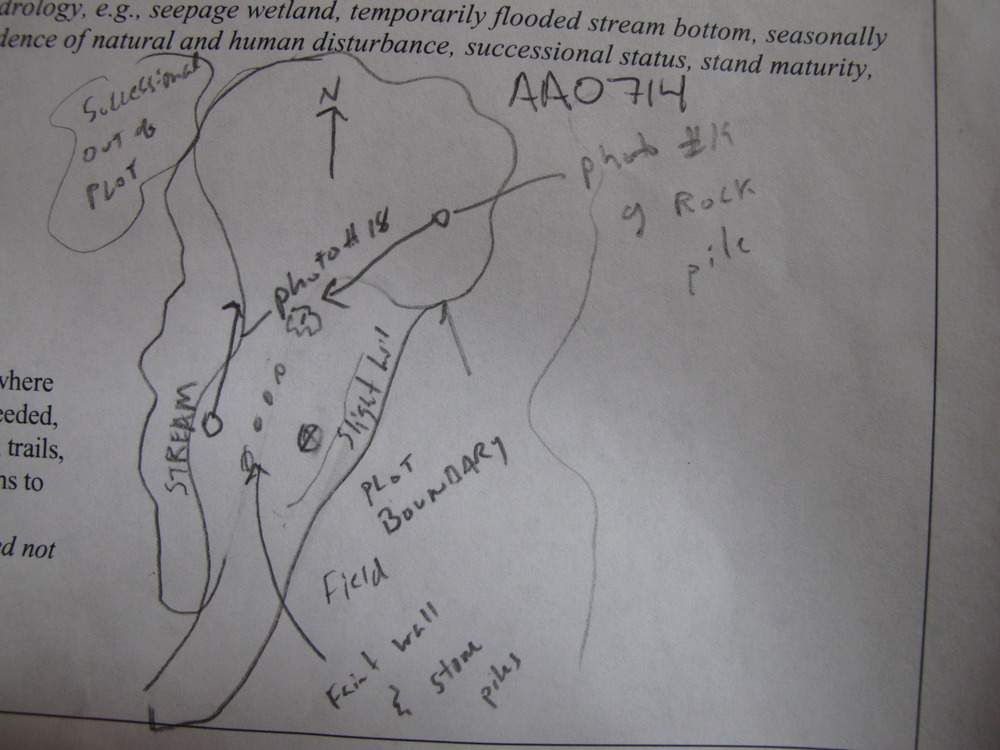 drology, e.g., seepage wetland, temporarily flooded stream bottom, seasonally
dence of natural and human disturbance, successional status, stand maturity,
Successional
out of
PLOT
N
AAO714
photo #19
of Rock
pile
photo # 18
where
eeded,
trails,
ns to
ed not
STREAM
Slight hill
PLOT
BOUNDARY
Field
Faint wall
& stone
piles